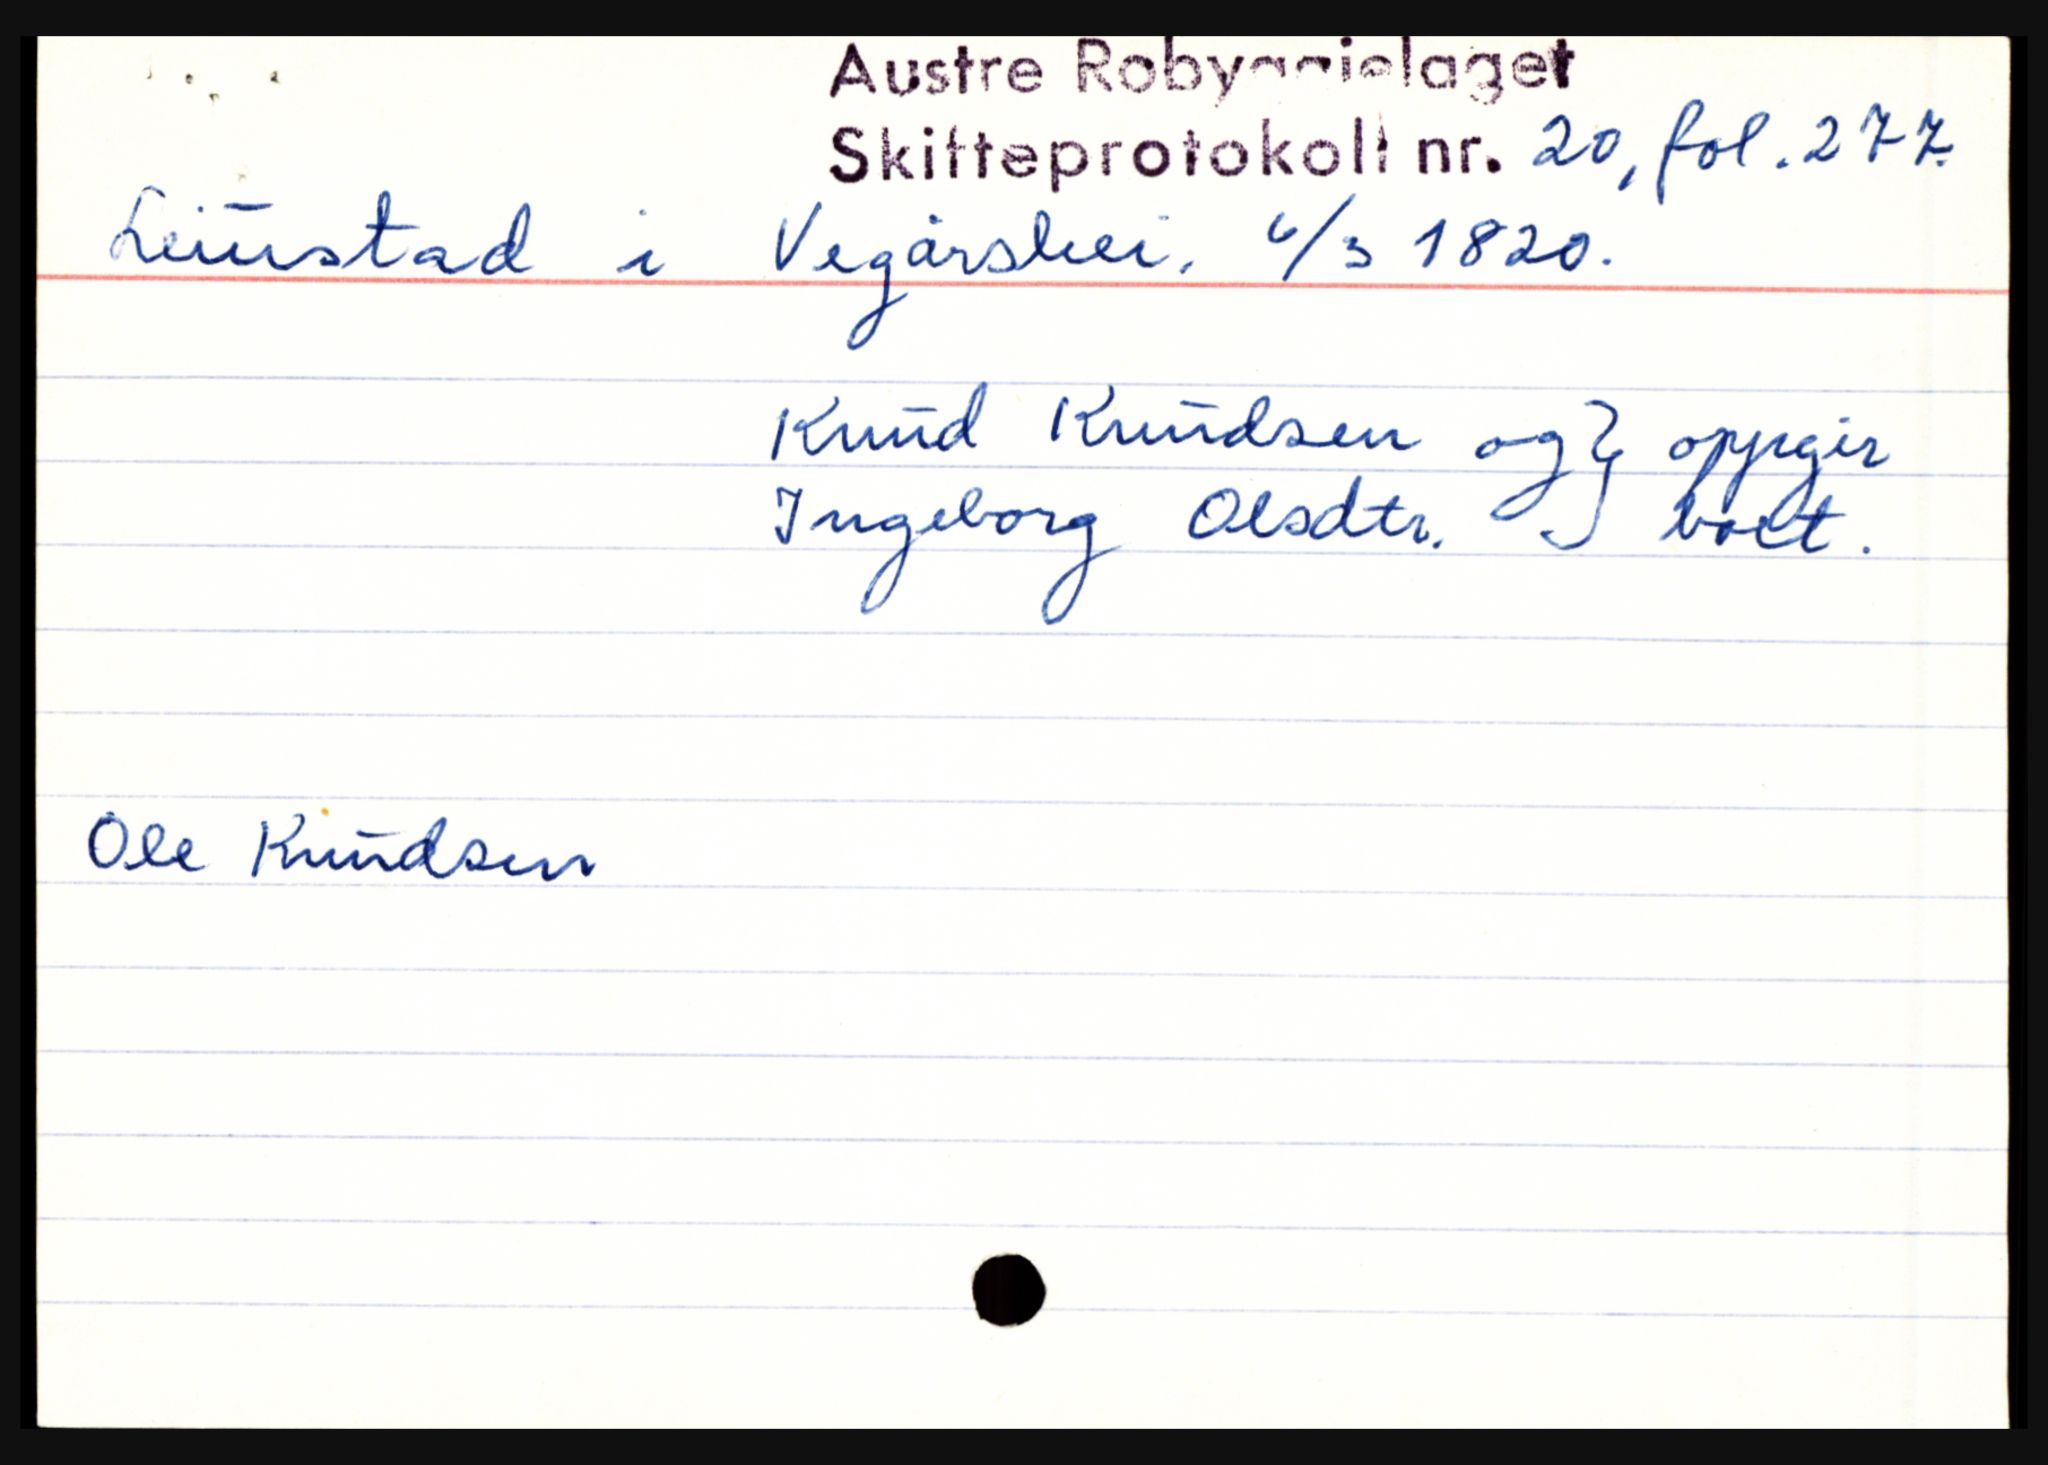 Austre Robyggjelaget
Skifteprotokoll nr. 20, fol. 277.
Leiustad i Vegårshei. 6/3 1820.
Knud Knudsen og } oppgir
Ingeborg Olsdtr. } boet.
Ole Knudsen